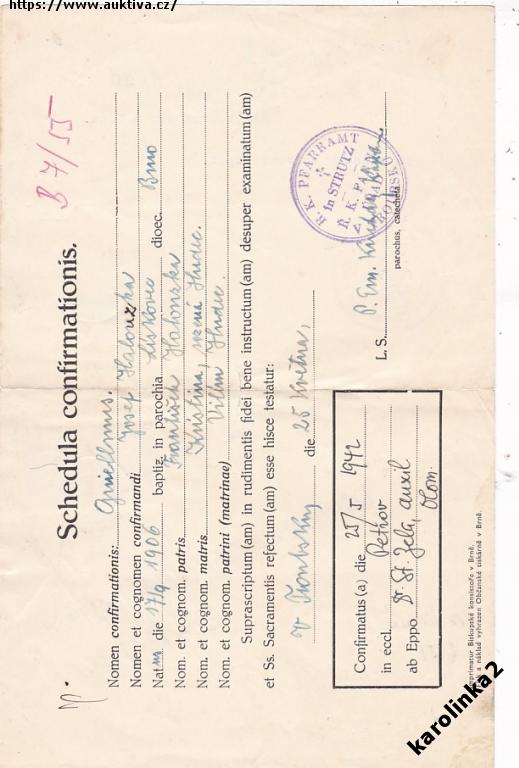 https://www.auktiva.cz/
B 7/55
Schedula confirmationis.
Nomen confirmationis: Guiellmus.
Nomen et cognomen confirmandi Josef Halouzka
Nat us die 17/9 1906 baptiz. in parochia dioec. Brno
Nom. et cognom. patris František Halouzka
Nom. et cognom. matris Kristina, rozená Hudec.
Nom. et cognom. patrini (matrinae) Vilém Hudec.
Suprascriptum (am) in rudimentis fidei bene instructum (am) desuper examinatum (am)
et Ss. Sacramentis refectum (am) esse hisce testatur:
v die 25 května,
R. K. PFARRAMT
in STRUTZ
R. K.
L. S. P. Em.
parochus, catecheta.
Confirmatus (a) die 25/5 1942
in eccl. Petrov
ab Eppo. Dr. St. Zela, auxil
Olom.
Imprimatur Biskupské konsistoře v Brně.
a náklad vyhrazen Občanské tiskárně v Brně.
karolinka2